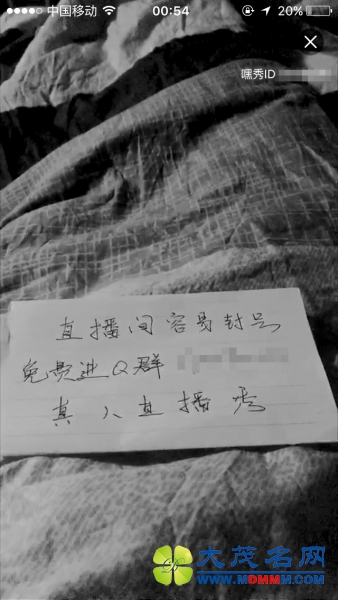 中国移动 00:54 20%
嘿秀ID
直播间容易封号
免费进Q群
真人直播秀
大茂名网
WWW.MDMMM.COM